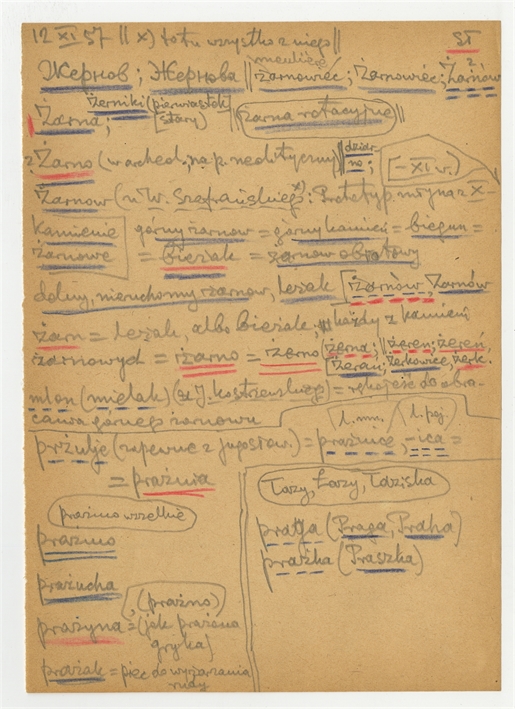 12 XI 57 || x) to tu wszystko z niego || ST
Жернов; Жернова || żarnowiec; Żarnowiec; Żarnów
Żarna, Żerniki (pierwiastek stary) || żarna rotacyjne ||
? Żarno (w arched, np. neolityczny) dziarno; [-XI w.)
Żarnow (u W. Szafrańskiego x): Prototyp młyna z X-
kamienie górny żarnow = górny kamień = biegun =
żarnowe = bieżak = żarnow obrotowy
dolny, nieruchomy żarnow, leżak [żarnów, Żarnów
żarn = leżak, albo bieżak, każdy z kamieni
żarnowych = żarno = żerno [żerna; || żereń; żereń
żerań, Żerkowice, żerk.
młon (mielak) (u J. Kostrzewskiego) = rękojeść do obra-
cania górnego żarnowu l. mn. / l. poj.
prżulje (zapewne z jugosław.) = prażnice, -ica =
= prażnia
prażmo wszelkie
prażmo
prażucha
prażyna = (jak prażona gryka) , (prażno)
prażak = piec do wyprażania rudy
Tazy, Łazy, Łdziska
pratja (Praga, Praha)
prażka (Praszka)